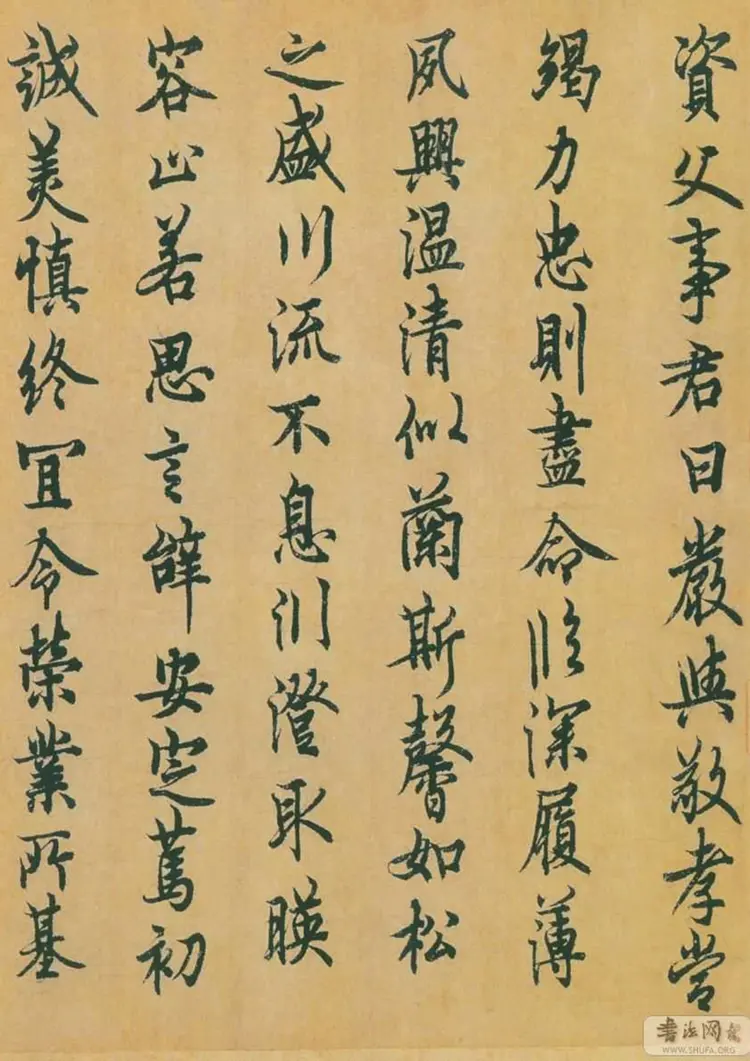 資父事君曰嚴與敬孝當
竭力忠則盡命臨深履薄
夙興温清似蘭斯馨如松
之盛川流不息渊澄取暎
容止若思言辭安定篤初
誠美慎終宜令榮業所基
書法网
WWW.SHUFA.ORG